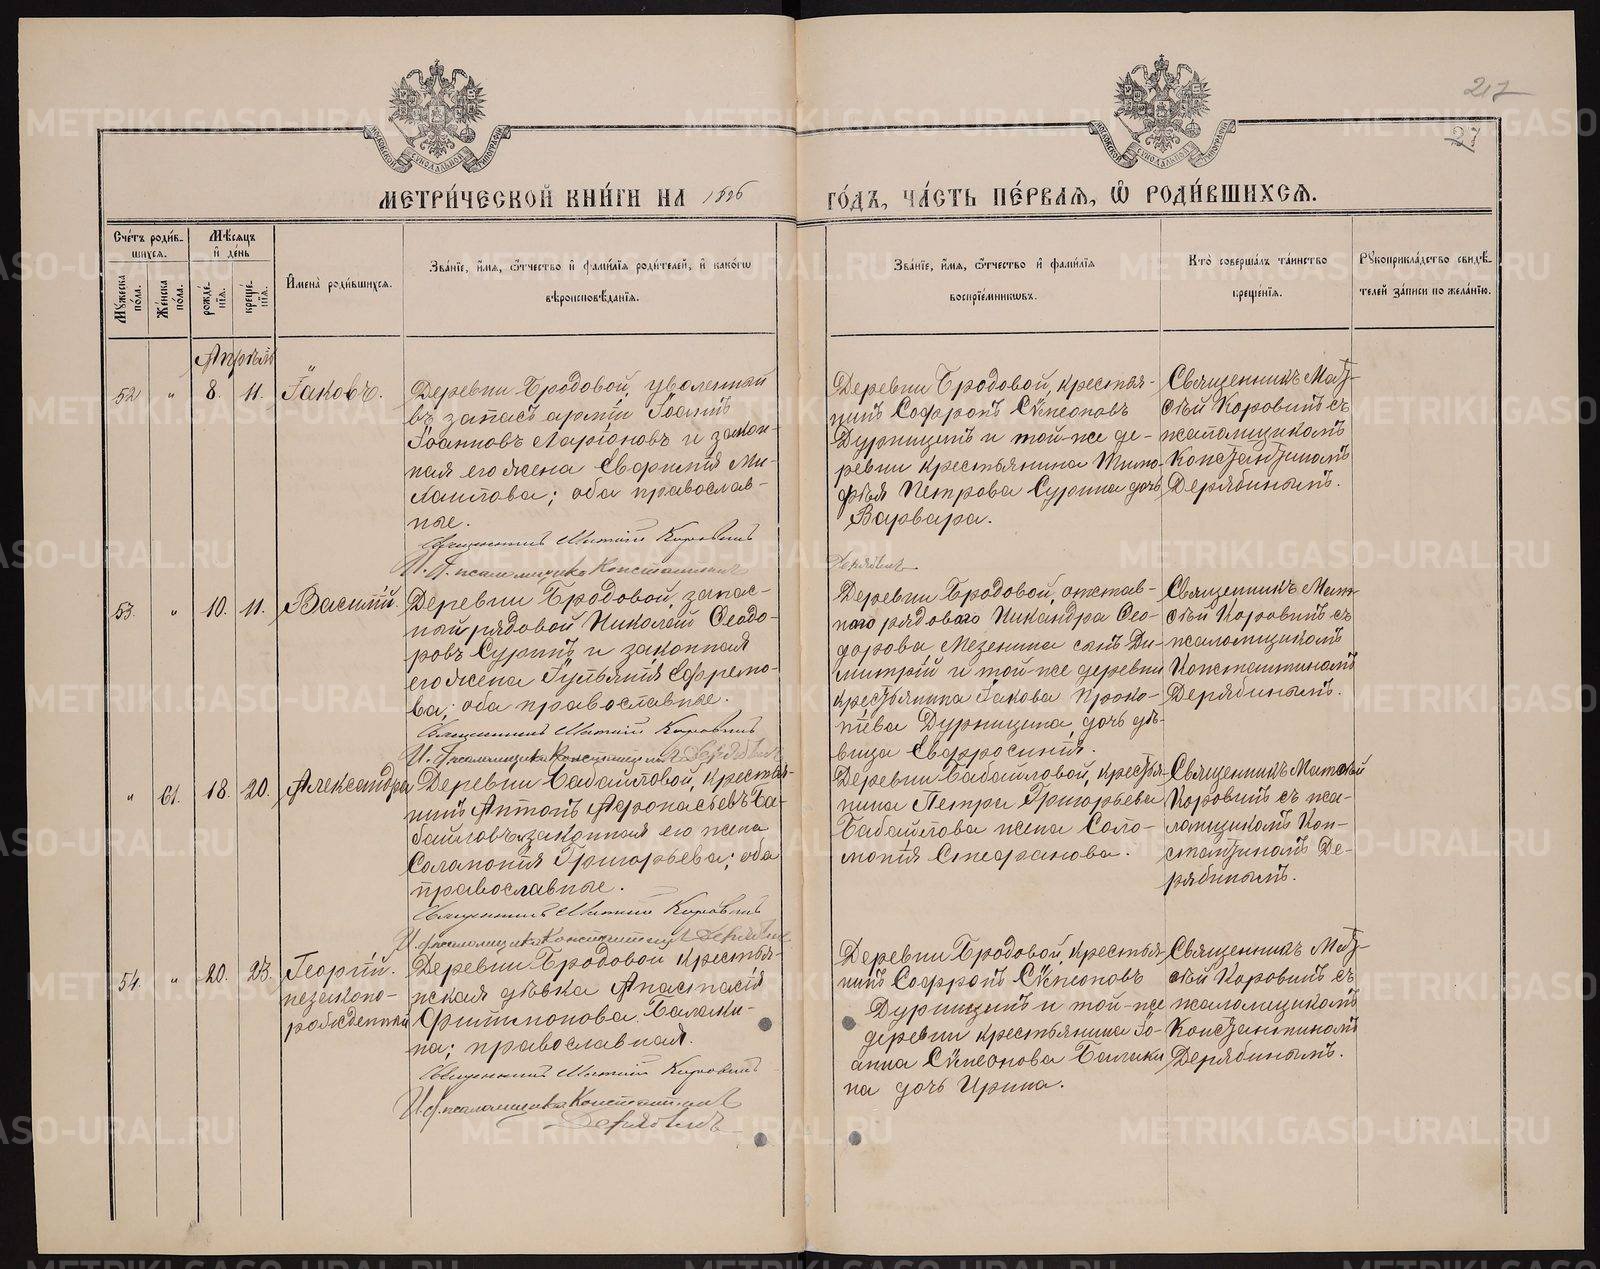 217
27
МЕТРИ́ЧЕСКОЙ КНИ́ГИ НА 1896 ГО́ДЪ, ЧА́СТЬ ПЕ́РВАЯ, Ѽ РОДИ́ВШИХСЯ.
Сче́тъ роди́в-
шихся.
Му́жеска по́ла.
Же́нска по́ла.
Мѣ́сяцъ
и де́нь
рожде́-
нїя.
креще́-
нїя.
И҆мена̀ роди́вшихся.
Зва́нїе, и҆́мя, ѻ҆́тчество и҆ фами́лїя роди́телей, и҆ како́гѡ
вѣроисповѣ́данїя.
Зва́нїе, и҆́мя, ѻ҆́тчество и҆ фами́лїя
воспрїе́мниковъ.
Кто̀ соверша́лъ та́инство
креще́нїя.
Рꙋкоприкла́дство свидѣ́-
телей за́писи по жела́нїю.
Апрѣль
52 " 8. 11. Іаковъ.
Деревни Бродовой, уволенный
въ запасъ арміи Іоаннъ
Іоанновъ Ларіоновъ и закон-
ная его жена Евфимія Ми-
хаилова; оба православ-
ные.
Священникъ Матѳій Коровинъ
И. д. псаломщика Константинъ
Дерябинъ
Деревни Бродовой, крестья-
нинъ Софронъ Сѵмеоновъ
Дурницынъ и той-же де-
ревни крестьянина Тимо-
фея Петрова Сурина дочь
Варвара.
Священникъ Мат-
ѳій Коровинъ съ
псаломщикомъ
Константиномъ
Дерябинымъ.
53. " 10. 11. Василій.
Деревни Бродовой, запас-
ный рядовой Николай Ѳеодо-
ровъ Суринъ и законная
его жена Іуліанія Ефремо-
ва; оба православные.
Священникъ Матѳій Коровинъ
И. д. псаломщика Константинъ Дерябинъ
Деревни Бродовой, отстав-
ного рядового Никандра Ѳео-
дорова Мезенина сынъ Ди-
митрій и той-же деревни
крестьянина Іакова Проко-
піева Дурницына, дочь дѣ-
вица Евфросинія.
Священникъ Мат-
ѳій Коровинъ съ
псаломщикомъ
Константиномъ
Дерябинымъ.
" 61. 18. 20. Александра
Деревни Бабаиловой, крестья-
нинъ Антонъ Афонасьевъ Ба-
баиловъ законная его жена
Соломонія Григорьева; оба
православные.
Священникъ Матѳій Коровинъ
И. д. псаломщика Константинъ Дерябинъ
Деревни Бабаиловой, крестья-
нина Петра Григорьева
Бабаилова жена Соло-
монія Стефанова.
Священникъ Матѳій
Коровинъ съ пса-
ломщикомъ Кон-
стантиномъ Де-
рябинымъ.
54. " 20. 23. Георгій.
незаконо-
рожденный
Деревни Бродовой крестья-
нская дѣвка Анастасія
Филимонова Балаки-
на; православная.
Священникъ Матѳій Коровинъ
И. д. псаломщика Константинъ
Дерябинъ
Деревни Бродовой, крестья-
нинъ Софронъ Сѵмеоновъ
Дурницынъ и той-же
деревни крестьянина Іо-
анна Сѵмеонова Балаки-
на дочь Ирина.
Священникъ Мат-
ѳій Коровинъ съ
псаломщикомъ
Константиномъ
Дерябинымъ.
METRIKI.GASO-URAL.RU